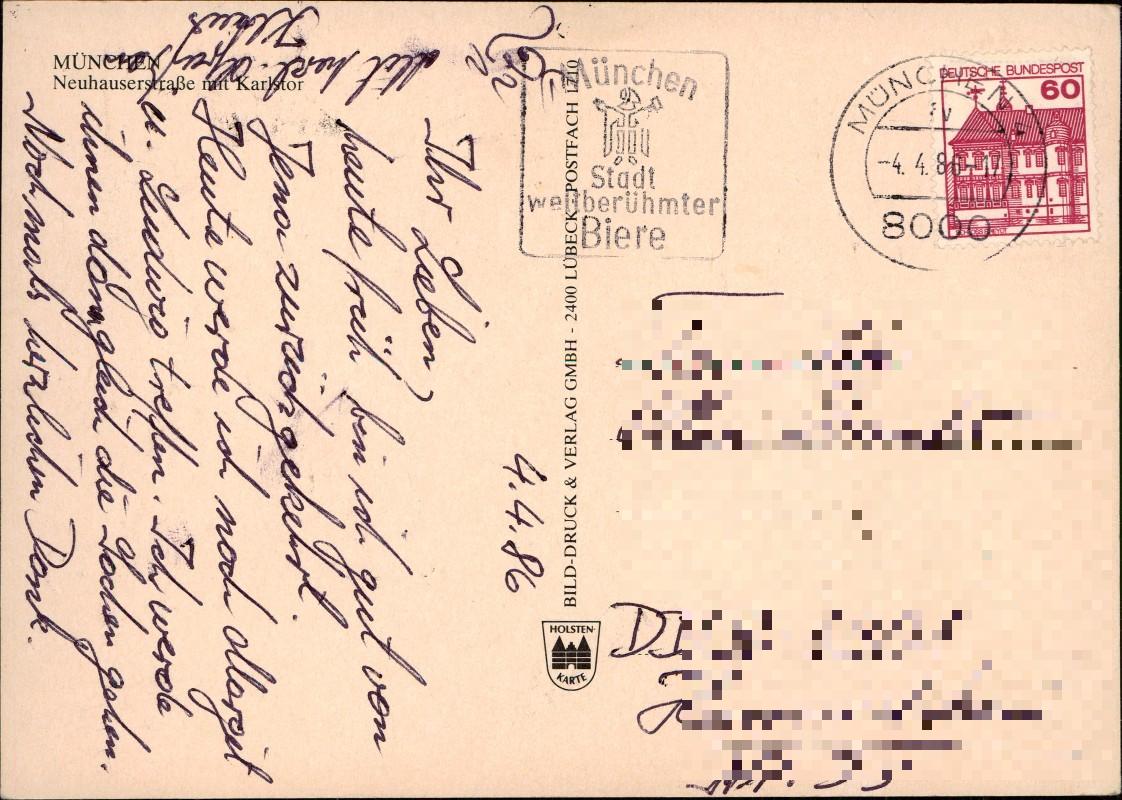 MÜNCHEN
Neuhauserstraße mit Karlstor
4.4.86
Ihr Lieben,
heute früh bin ich gut von
Jena zurückgekehrt.
Heute werde ich noch Margit
u. Ludwig treffen. Ich werde
ihnen dann gleich die Sachen geben.
Nochmals herzlichen Dank.
Klaus
BILD-DRUCK & VERLAG GMBH - 2400 LÜBECK POSTFACH
HOLSTEN-
KARTE
München
Stadt
weltberühmter
Biere
MÜNCHEN
-4.4.86-17
8000
DEUTSCHE BUNDESPOST
60